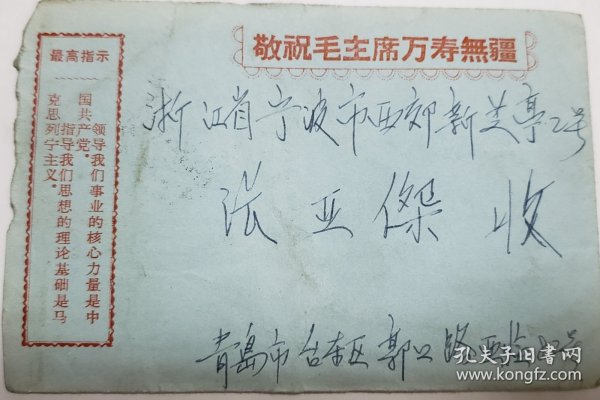 敬祝毛主席万寿無疆
最高指示
领导我们事业的核心力量是中
国共产党。
指导我们思想的理论基础是马
克思列宁主义。
浙江省宁波市西郊新芝亭2号
张亚傑 收
青岛市台东区郭口路
孔夫子旧书网
www.kongfz.com